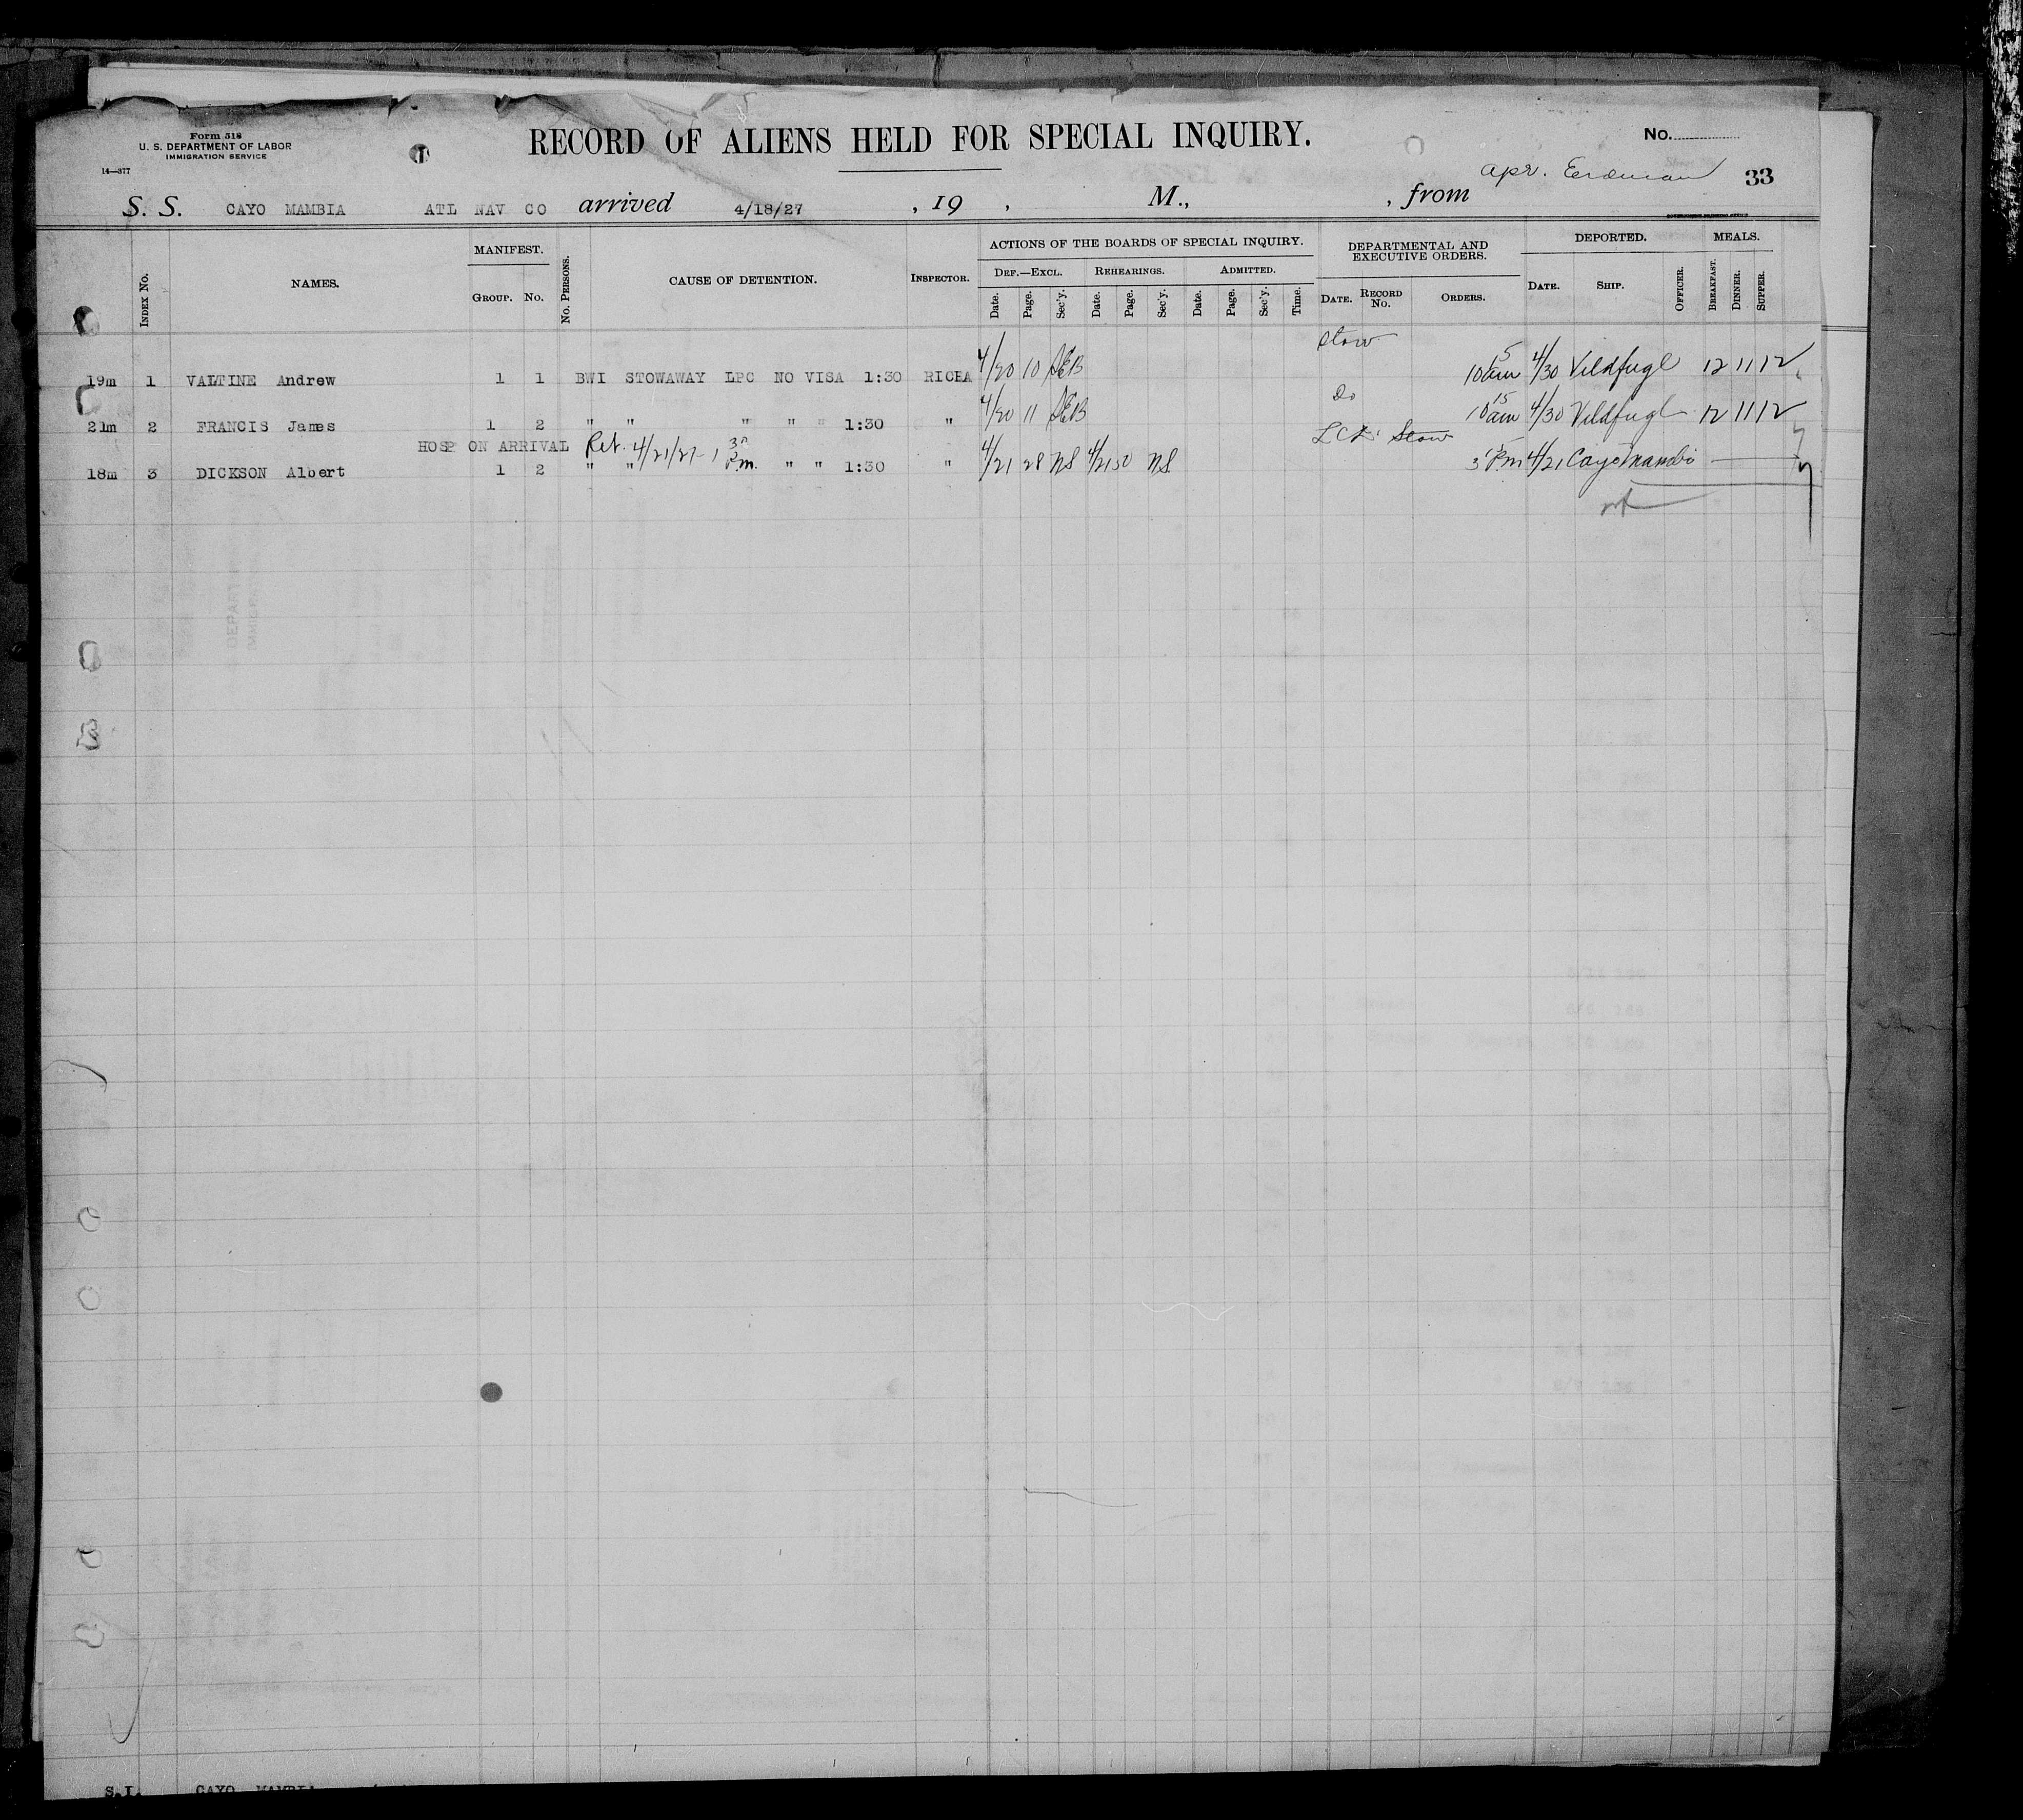 Form 518
U. S. DEPARTMENT OF LABOR
IMMIGRATION SERVICE
14—377
RECORD OF ALIENS HELD FOR SPECIAL INQUIRY.
No.
Apr. Erdman 33
S. S. CAYO MAMBIA ATL NAV CO arrived 4/18/27 , 19 , M., , from
INDEX No. NAMES. MANIFEST. GROUP. No. No. PERSONS. CAUSE OF DETENTION. INSPECTOR.
ACTIONS OF THE BOARDS OF SPECIAL INQUIRY.
DEF.—EXCL. REHEARINGS. ADMITTED.
Date. Page. Sec'y. Date. Page. Sec'y. Date. Page. Sec'y. Time.
DEPARTMENTAL AND EXECUTIVE ORDERS.
DATE. RECORD No. ORDERS.
DEPORTED.
DATE. SHIP. OFFICER.
MEALS.
BREAKFAST. DINNER. SUPPER.
Stow
19m 1 VALTINE Andrew 1 1 BWI STOWAWAY LPC NO VISA 1:30 RICHA 4/20 10 SEB 10 15 am 4/30 Vildfugl 12 11 12
Do
21m 2 FRANCIS James 1 2 " " " " " 1:30 " 4/20 11 SEB 10 15 am 4/30 Vildfugl 12 11 12
HOSP ON ARRIVAL Ret. 4/21/27 1 30 Pm. Stow
18m 3 DICKSON Albert 1 2 " " " " 1:30 " 4/21 28 NS 4/21 50 NS 3 15 Pm 4/21 Cayo Mambi
S.I. CAYO MAMBIA